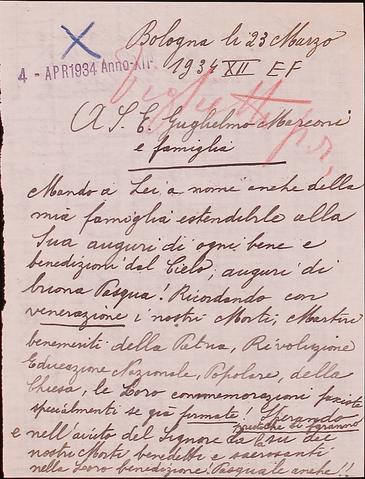 Bologna li 23 Marzo
4 - APR 1934 Anno-XII
1934 XII EF
A S. E. Guglielmo Marconi
e famiglia
Mando a Lei a nome anche della
mia famiglia estendibile alla
Sua auguri di ogni bene e
benedizioni dal Cielo, auguri di
buona Pasqua! Ricordando con
venerazione i nostri Morti, Martiri
benemeriti della Patria, Rivoluzione
Educazione Nazionale, Popolare, della
Chiesa, le Loro commemorazioni
specialmenti se già firmate! Sperando
e nell'aiuto del Signore da su dei
nostri Morti benedetti e sacrosanti
nella Loro benedizione! Pasquale anche!!